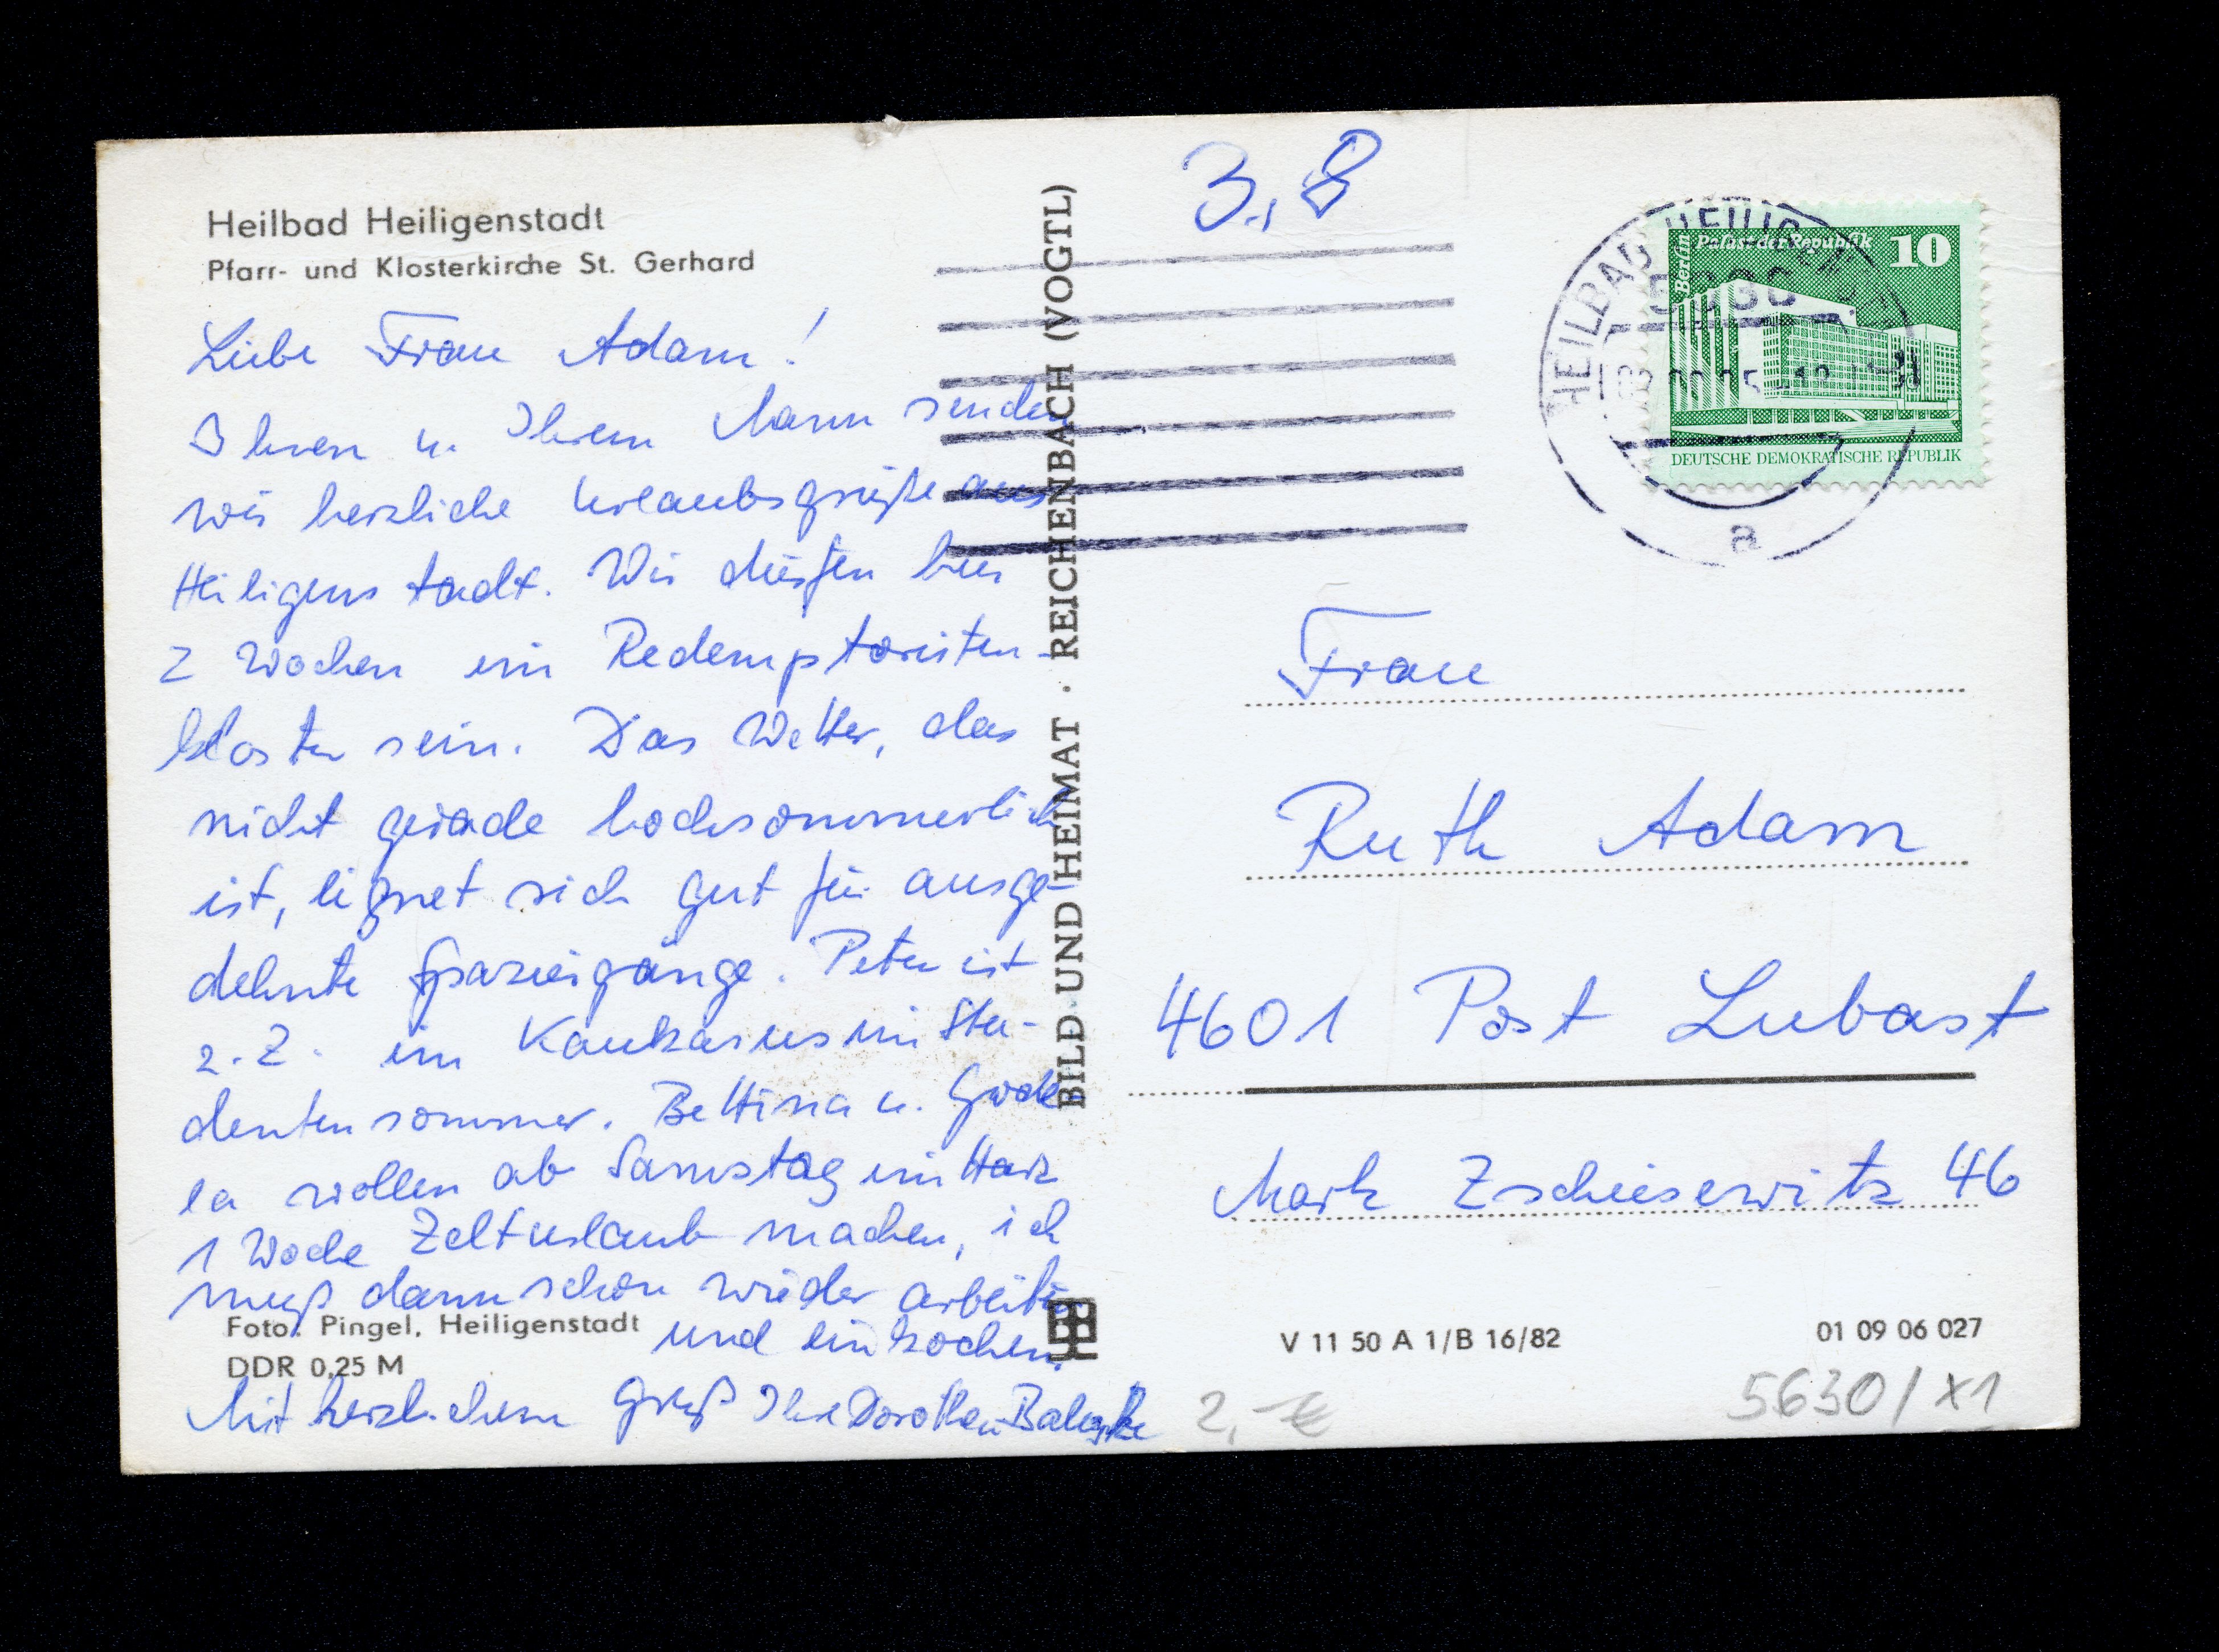 Heilbad Heiligenstadt
Pfarr- und Klosterkirche St. Gerhard
Liebe Frau Adam!
Ihnen u. Ihrem Mann senden
wir herzliche Urlaubsgrüße aus
Heiligenstadt. Wir dürfen hier
2 Wochen im Redemptoristen-
kloster sein. Das Wetter, das
nicht gerade hochsommerlich
ist, eignet sich gut für ausge-
dehnte Spaziergänge. Peter ist
z. Z. im Kaukasus im Stu-
dentensommer. Bettina u.
wollen ab Samstag im Harz
1 Woche Zelturlaub machen, ich
muß dann schon wieder arbeiten
und einkochen.
Foto: Pingel, Heiligenstadt
DDR 0,25 M
Mit herzlichem Gruß Ihre Dorothea
BILD UND HEIMAT · REICHENBACH (VOGTL)
3.8
HEILBAD HEILIGENSTADT
a
Berlin
Palast der Republik
10
DEUTSCHE DEMOKRATISCHE REPUBLIK
Frau
Ruth Adam
4601 Post Lubast
Mark Zschiesewitz 46
V 11 50 A 1/B 16/82
01 09 06 027
2,- €
5630/X1